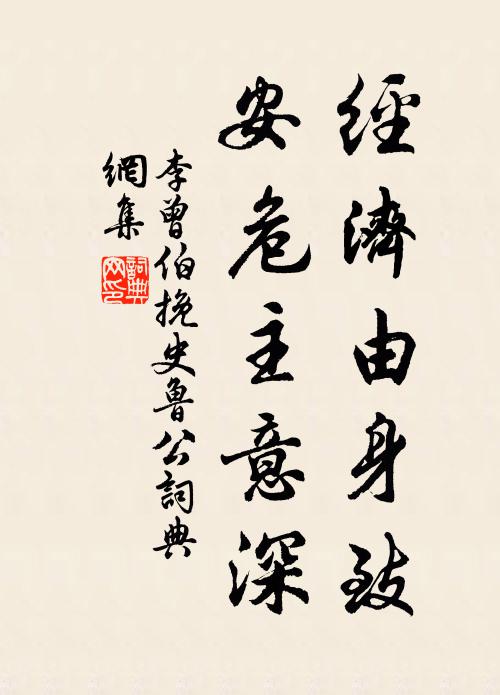 經濟由身致
安危主意深
李曾伯挽史魯公詞典
網集
詞典網印